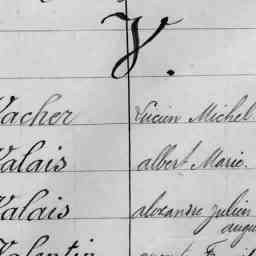 V.
Vacher Lucien Michel
Valais albert Marie.
Valais alexandre julien
augu
Valentin